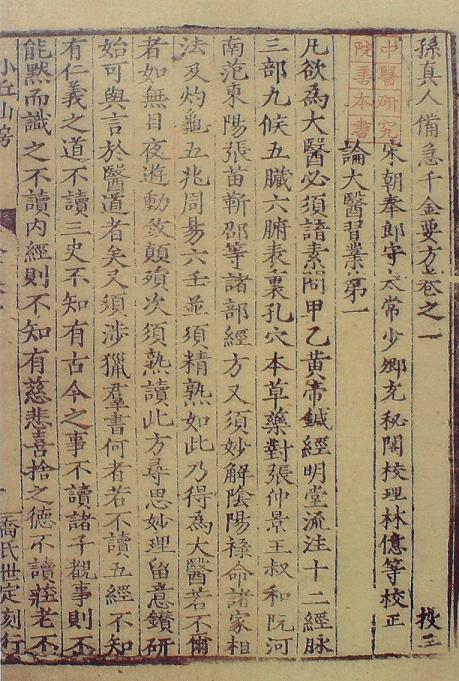 孫真人備急千金要方卷之一
宋朝奉郎守太常少卿充秘閣校理林億等校正
中醫研究
院善本書
論大醫習業第一
凡欲為大醫必須諳素問甲乙黃帝鍼經明堂流注十二經脉
三部九候五臟六腑表裏孔穴本草藥對張仲景王叔和阮河
南范東陽張苗靳邵等諸部經方又須妙解陰陽祿命諸家相
法及灼龜五兆周易六壬並須精熟如此乃得為大醫若不爾
者如無目夜遊動致顛殞次須熟讀此方尋思妙理留意鑽研
始可與言於醫道者矣又須涉獵羣書何者若不讀五經不知
有仁義之道不讀三史不知有古今之事不讀諸子覩事則不
能默而識之不讀內經則不知有慈悲喜捨之德不讀莊老不
小丘山房
喬氏世定刻行